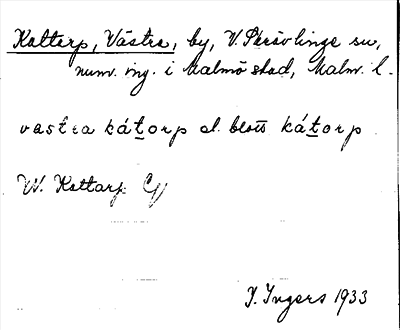 Kattarp, Västra, by, V. Skrävlinge sn,
num. ing. i Malmö stad, Malm. l.
vastra kátorp el. blott kátorp
W. Kattarp
I. Ingers 1933